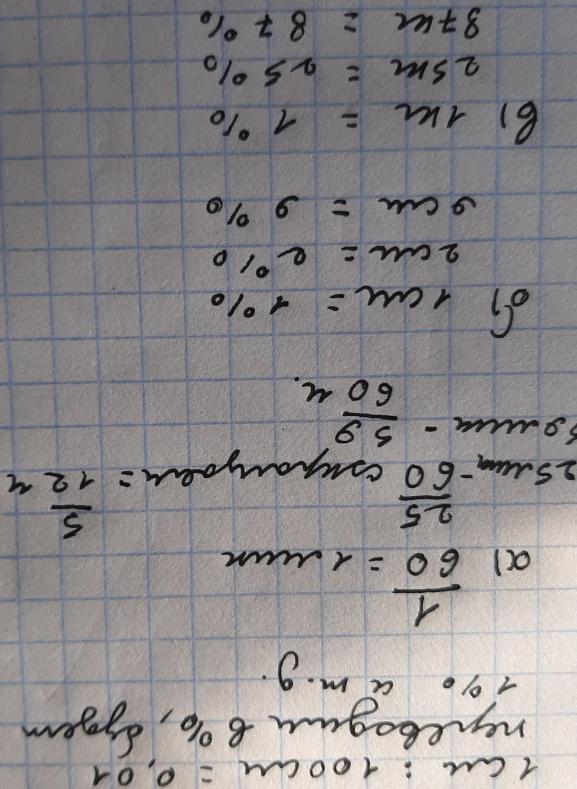 1 см : 100 см = 0,01
переводим в %, будет
1% и т.д.
а) 1/60 = 1 мин
25 мин - 25/60 сокращаем = 5/12 ч
59 мин - 59/60 ч.
б) 1 см = 1%
2 см = 2%
9 см = 9%
в) 1 кг = 1%
25 кг = 25%
87 кг = 87%